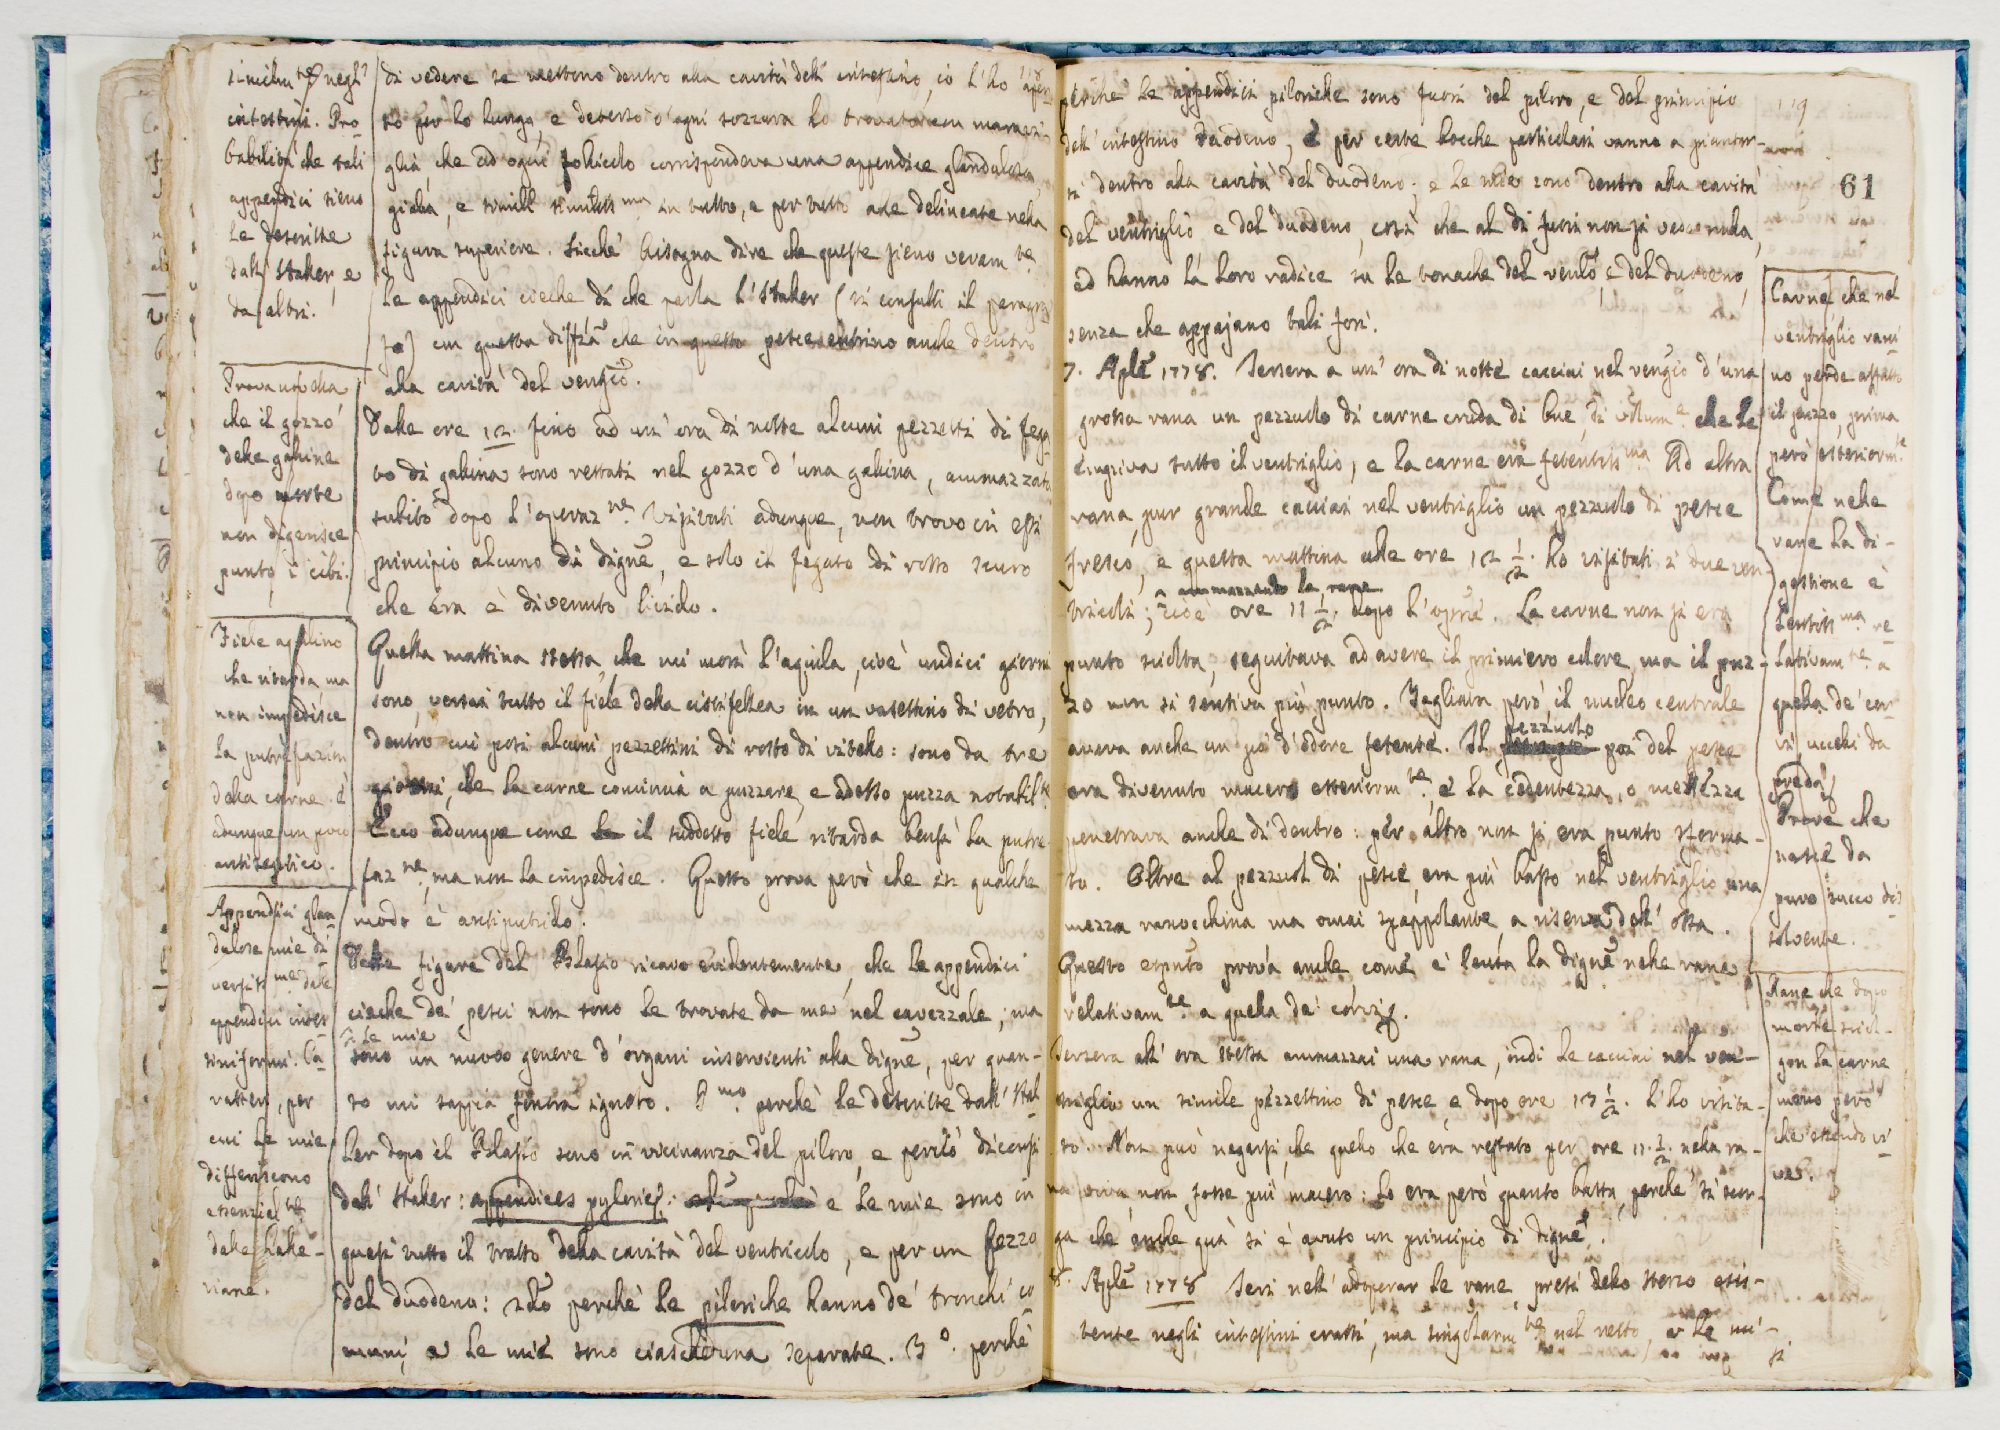 118
di vedere se mettono dentro alla cavità dell' intestino, io l'ho aper-
to per lo lungo, e deterso d'ogni sozzura ho trovato con maravi-
glia, che ad ogni follicolo corrispondeva una appendice glandulosa,
gialla, e simill in tutto, e per tutto alle delineate nella
figura superiore. Sicchè bisogna dire che queste sieno veram.te
le appendici cieche di che parla l'Haller (si consulti il paragra-
fo) con questa diffza che in questo pesce entrino anche dentro
alla cavità del vengio.
Dalle ore 12 fino ad un' ora di notte alcuni pezzetti di fega-
to di gallina sono restati nel gozzo d'una gallina, ammazzata
subito dopo l'operaz.ne. Visitati adunque, non trovo in essi
principio alcuno di digne, e solo il fegato di rosso scuro
che era è divenuto livido.
Quella mattina stessa, che mi morì l'aquila, cioè undici giorni
sono, versai tutto il fiele della cistifellea in un vasettino di vetro,
dentro cui posi alcuni pezzettini di rosto di vitello: sono da tre
giorni, che la carne comincia a puzzare, e adesso puzza notabil.te
Ecco adunque come il suddetto fiele ritarda bensì la putre-
faz.ne, ma non la impedisce. Questo prova però che in qualche
modo è antiputrido.
Dalle figure del Blasio ricavo evidentemente, che le appendici
cieche de' pesci non sono le trovate da me nel cavezzale; ma
si le mie
sono un nuovo genere d'organi inservienti alla digne, per quan-
to mi sappia finora ignoto. P.mo perchè le descritte dall' Hal-
ler dopo il Blasio sono in vicinanza del piloro, e perciò dicensi
dall' Haller: appendices pyloricæ: e le mie sono in
quasi tutto il tratto della cavità del ventricolo, e per un pezzo
del duodeno: 2do perchè le piloriche hanno de' tronchi co-
muni, e le mie sono ciascheduna separate. 3o. perchè
simil.te negl'
intestini. Pro-
babilità che tali
appendici sieno
le descritte
dall' Haller, e
da altri.
Prova novella
che il gozzo
delle galline
dopo morte
non digerisce
punto i cibi.
Fiele aquilino
che ritarda, ma
non impedisce
la putrefazion
della carne. è
adunque un poco
antisettico.
Appendici glan-
dulose mie di-
versiss.me dalle
appendici intes-
tiniformi. Ca-
ratteri, per
cui le mie
differiscono
essenzial.te
dalle Halle-
riane.
119
61
perchè le appendici piloriche sono fuori del piloro, e del principio
dell' intestino duodeno, e per certe bocche particolari vanno a piantar-
si dentro alla cavità del duodeno; e le mie sono dentro alla cavità
del ventriglio e del duodeno, così che al di fuori non si vede nulla,
ed hanno la loro radice su le tonache del ventlo, e del duodeno,
senza che appajano tali fori.
7. Aple 1778. Jersera a un' ora di notte cacciai nel vengio d'una
grossa rana un pezzuolo di carne cruda di bue, di volum.e che le
empiva tutto il ventriglio, e la carne era fetentiss.ma. Ad altra
rana, pur grande cacciai nel ventriglio un pezzuolo di pesce
fresco, e questa mattina alle ore 12 1/2. ho visitati i due ven-
ammazzando le rane
tricoli; cioè ore 11 1/2. dopo l'opne. La carne non si era
punto sciolta, seguitava ad avere il primiero colore, ma il puz-
zo non si sentiva più punto. Tagliata però il nucleo centrale
aveva anche un po' d'odore fetente. Il pezzuolo poi del pesce
era divenuto macero esteriorm.te, e la cedentezza, o mollezza
penetrava anche di dentro: per altro non si era punto sforma-
to. Oltre al pezzuol di pesce, era più basso nel ventriglio una
mezza ranocchina ma omai spappolante a riserva dell' ossa.
Questo espto prova anche, come è lenta la digne nelle rane
relativam.te a quella de' corvi.
Jersera all' ora stessa ammazzai una rana, indi le cacciai nel ven-
triglio un simile pezzettino di pesce, e dopo ore 13 1/2. l'ho visita-
to. Non può negarsi, che quello che era restato per ore 11. 1/2. nella ra-
na viva, non fosse più macero: lo era però quanto basta, perchè si scor-
ga che anche quà si è avuto un principio di digne.
8. Aple 1778 Jeri nell' adoperar le rane, presi dello sterco esis-
tente negli intestini crassi, ma singolarm.te nel retto, e le mi-
si
Carne, che nel
ventriglio rani-
no perde affatto
il puzzo, prima
però esteriorm.te
Come nelle
rane la di-
gestione è
lentiss.ma re-
lativam.te a
quella de' cor-
vi uccelli da
preda,
Prove che
nasce da
puro succo dis-
solvente.
Rane che dopo
morte sciol-
gon la carne
meno però
che essendo vi-
ve.